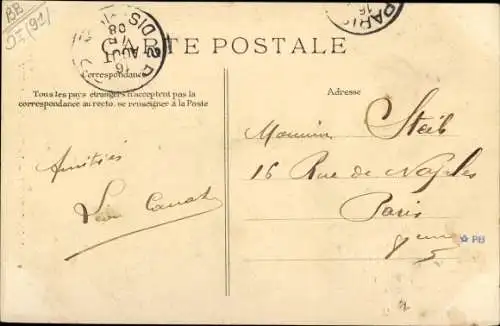 BB
CARTE POSTALE
Correspondance
Tous les pays étrangers n'acceptent pas la
correspondance au recto. se renseigner à la Poste
Adresse
Amitiés
Monsieur Steib
16 Rue de Naples
Paris
PARIS
16
AOUT
08
PB